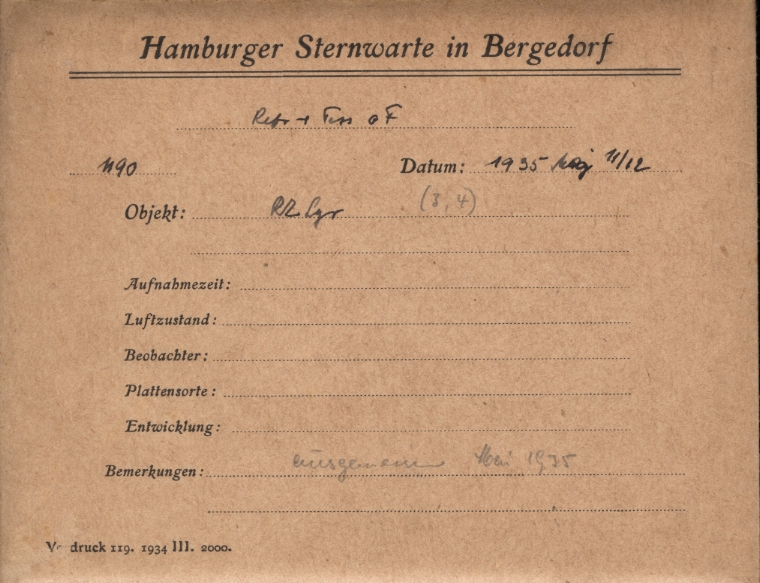 Hamburger Sternwarte in Bergedorf
Refr + Tess o F
1190 Datum: 1935 Mai 11/12
Objekt: RR Lyr (3, 4)
Aufnahmezeit:
Luftzustand:
Beobachter:
Plattensorte:
Entwicklung:
Bemerkungen: ausgemessen Mai 1935
druck 119. 1934 III. 2000.